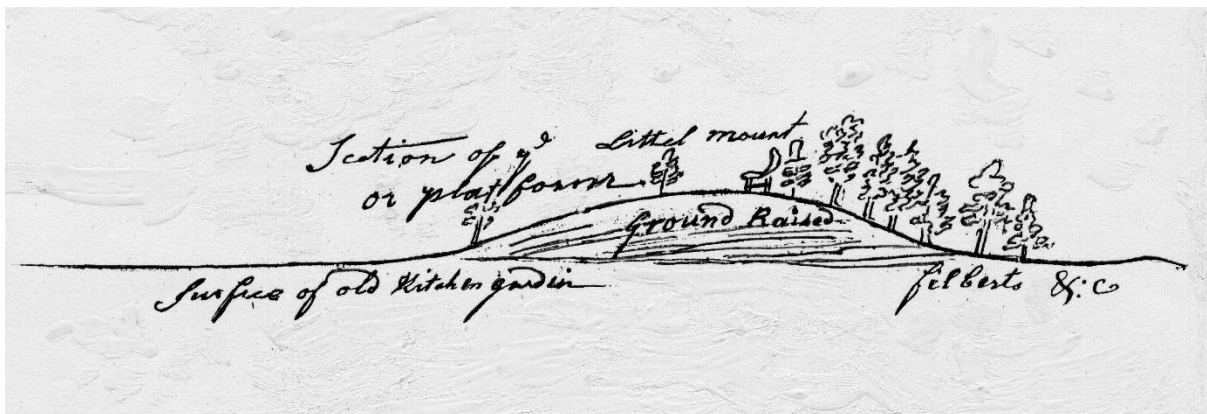 Section of yᵉ Littel mount
or platform
Ground Raised
Surface of old Kitchen gardin
filberts &:c